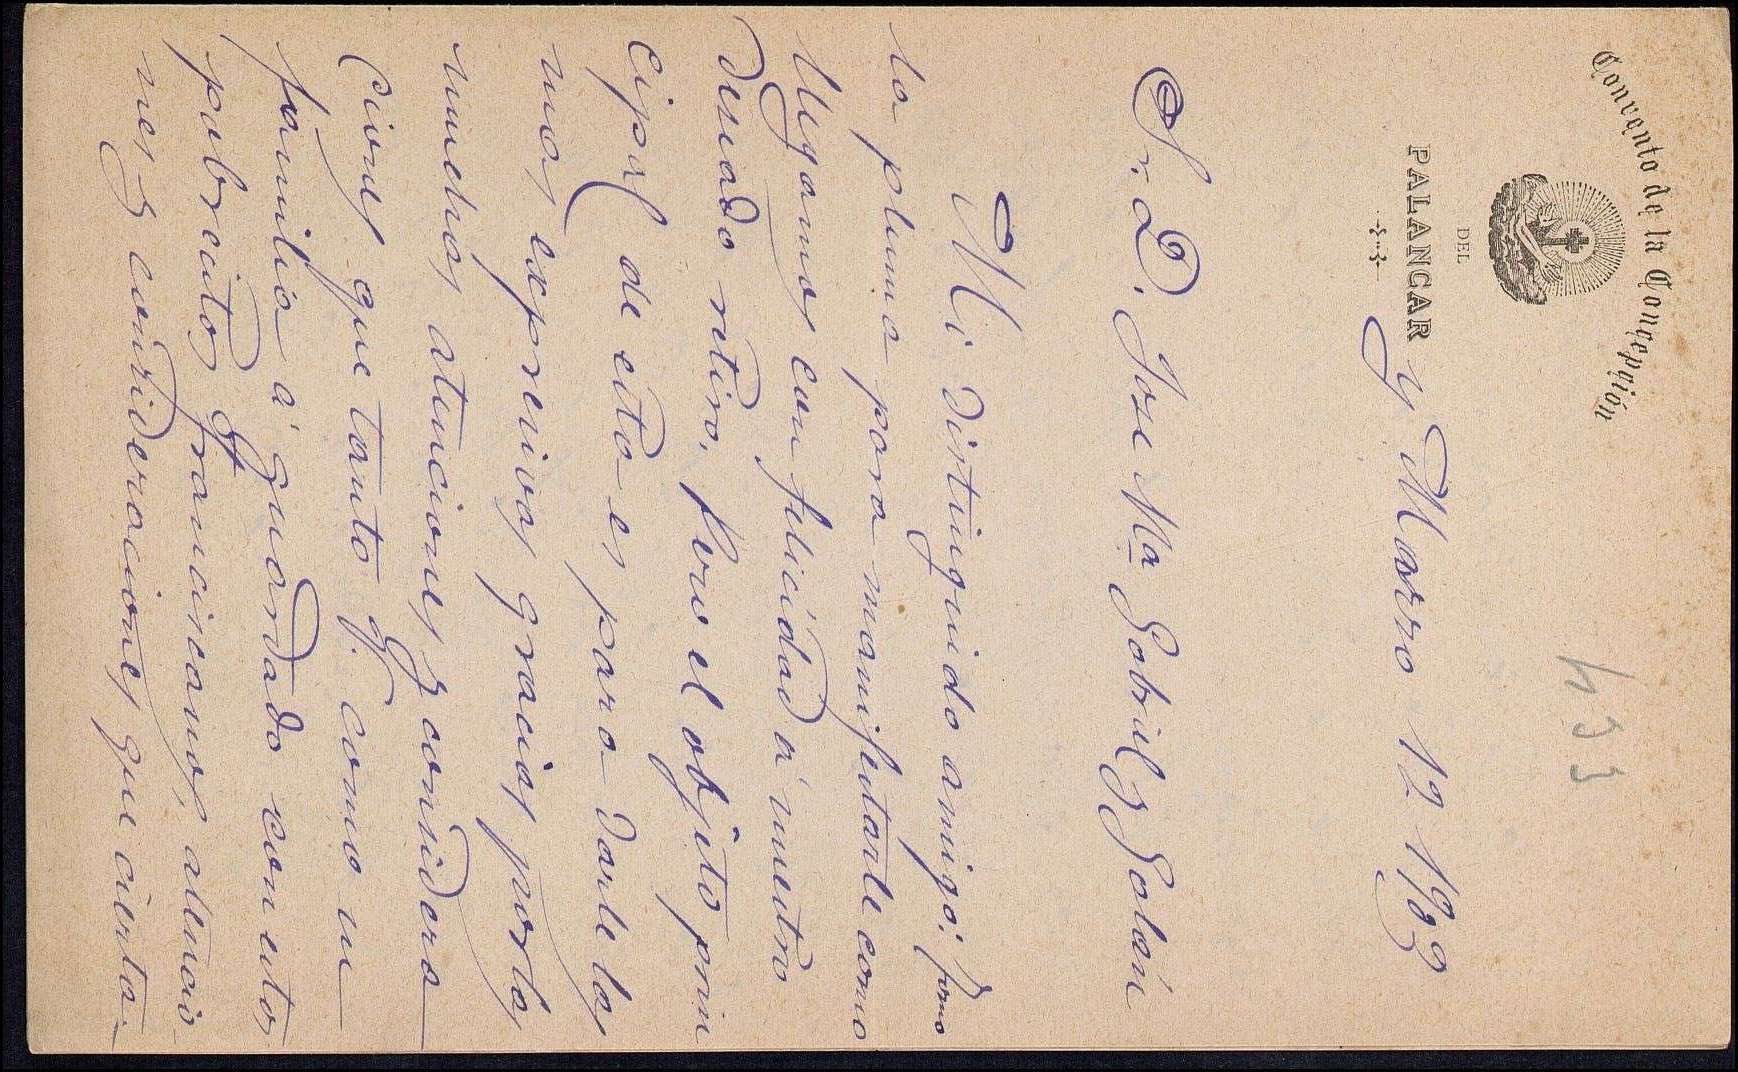 Convento de la Concepción
DEL
PALANCAR
433
y Marzo 12 1903
Sr. D. Jose Ma Gabriel y Galán
Mi distinguido amigo: tomo
la pluma para manifestarle como
llegamos con felicidad á nuestro
deseado retiro, pero el objeto prin
cipal de esta es para darle las
mas expresivas gracias por las
muchas atenciones y considera
ciones que tanto V. como su
familia á guardado con estos
pobrecitos Franciscanos, atencio-
nes y consideraciones que cierta-